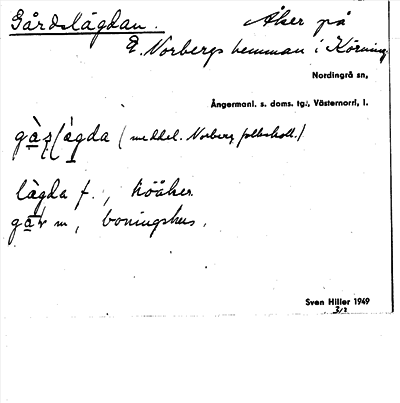 Gårdslägdan. Åker på
E. Norbergs hemman i Körning
Nordingrå sn,
Ångermanl. s. doms. tg., Västernorrl. l.
gàʂlàgda (meddel. Norberg folkskoll.)
làgda f., höåker.
gàr m, boningshus.
Sven Hiller 1949
3/2